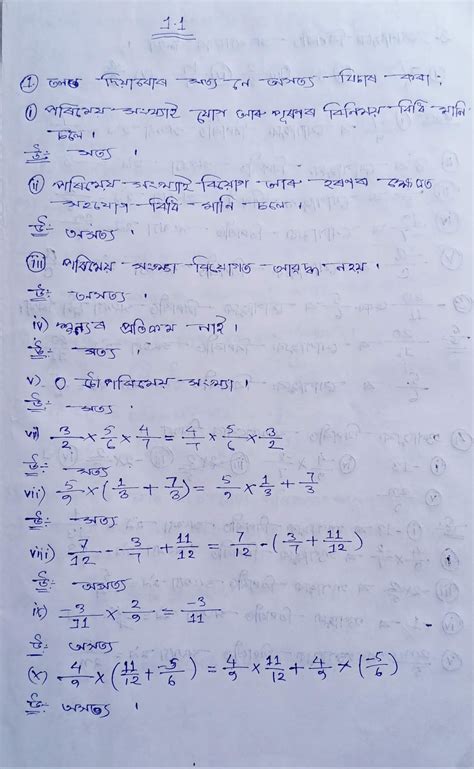 1.1
① তলত দিয়াবোৰ সত্য নে অসত্য বিচাৰ কৰা :
ⓘ পৰিমেয় সংখ্যাই যোগ আৰু পূৰণৰ বিনিময় বিধি মানি
চলে ।
উঃ সত্য ।
(ii) পৰিমেয় সংখ্যাই বিয়োগ আৰু হৰণৰ ক্ষেত্ৰত
সহযোগ বিধি মানি চলে ।
উঃ অসত্য ।
(iii) পৰিমেয় সংখ্যা বিয়োগত আবদ্ধ নহয় ।
উঃ অসত্য ।
iv) শূন্যৰ প্ৰতিক্ৰম নাই ।
উঃ সত্য ।
v) 0 টো পৰিমেয় সংখ্যা ।
উঃ সত্য ।
vi) 3/2 × 5/6 × 4/7 = 4/7 × 5/6 × 3/2
উঃ সত্য
vii) 5/9 × (1/3 + 7/3) = 5/9 × 1/3 + 7/3
উঃ সত্য
viii) 7/12 - 3/7 + 11/12 = 7/12 - (3/7 + 11/12)
উঃ অসত্য
ix) -3/11 × 2/9 = -3/11
উঃ অসত্য
(x) 4/9 × (11/12 + -5/6) = 4/9 × 11/12 + 4/9 × (-5/6)
উঃ অসত্য ।